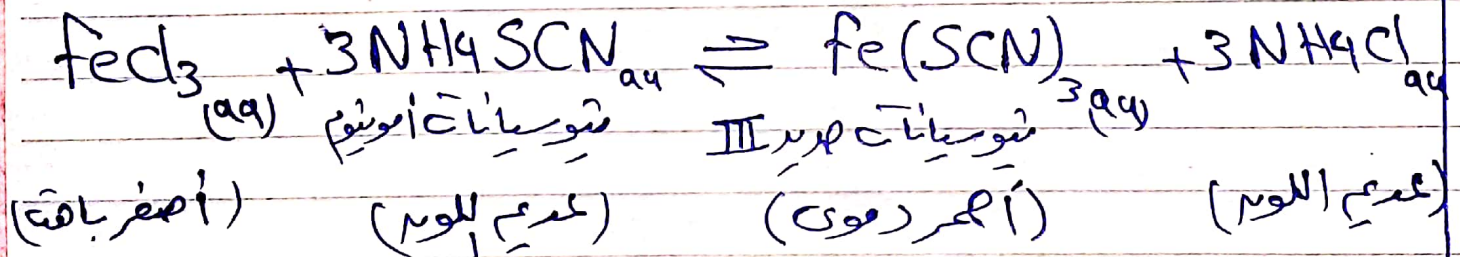 FeCl₃(aq) + 3NH4SCN aq ⇌ Fe(SCN)₃(aq) + 3NH4Cl aq
ثيوسيانات أمونيوم ثيوسيانات حديد III
(أصفر باهت) (عديم اللون) (أحمر دموى) (عديم اللون)